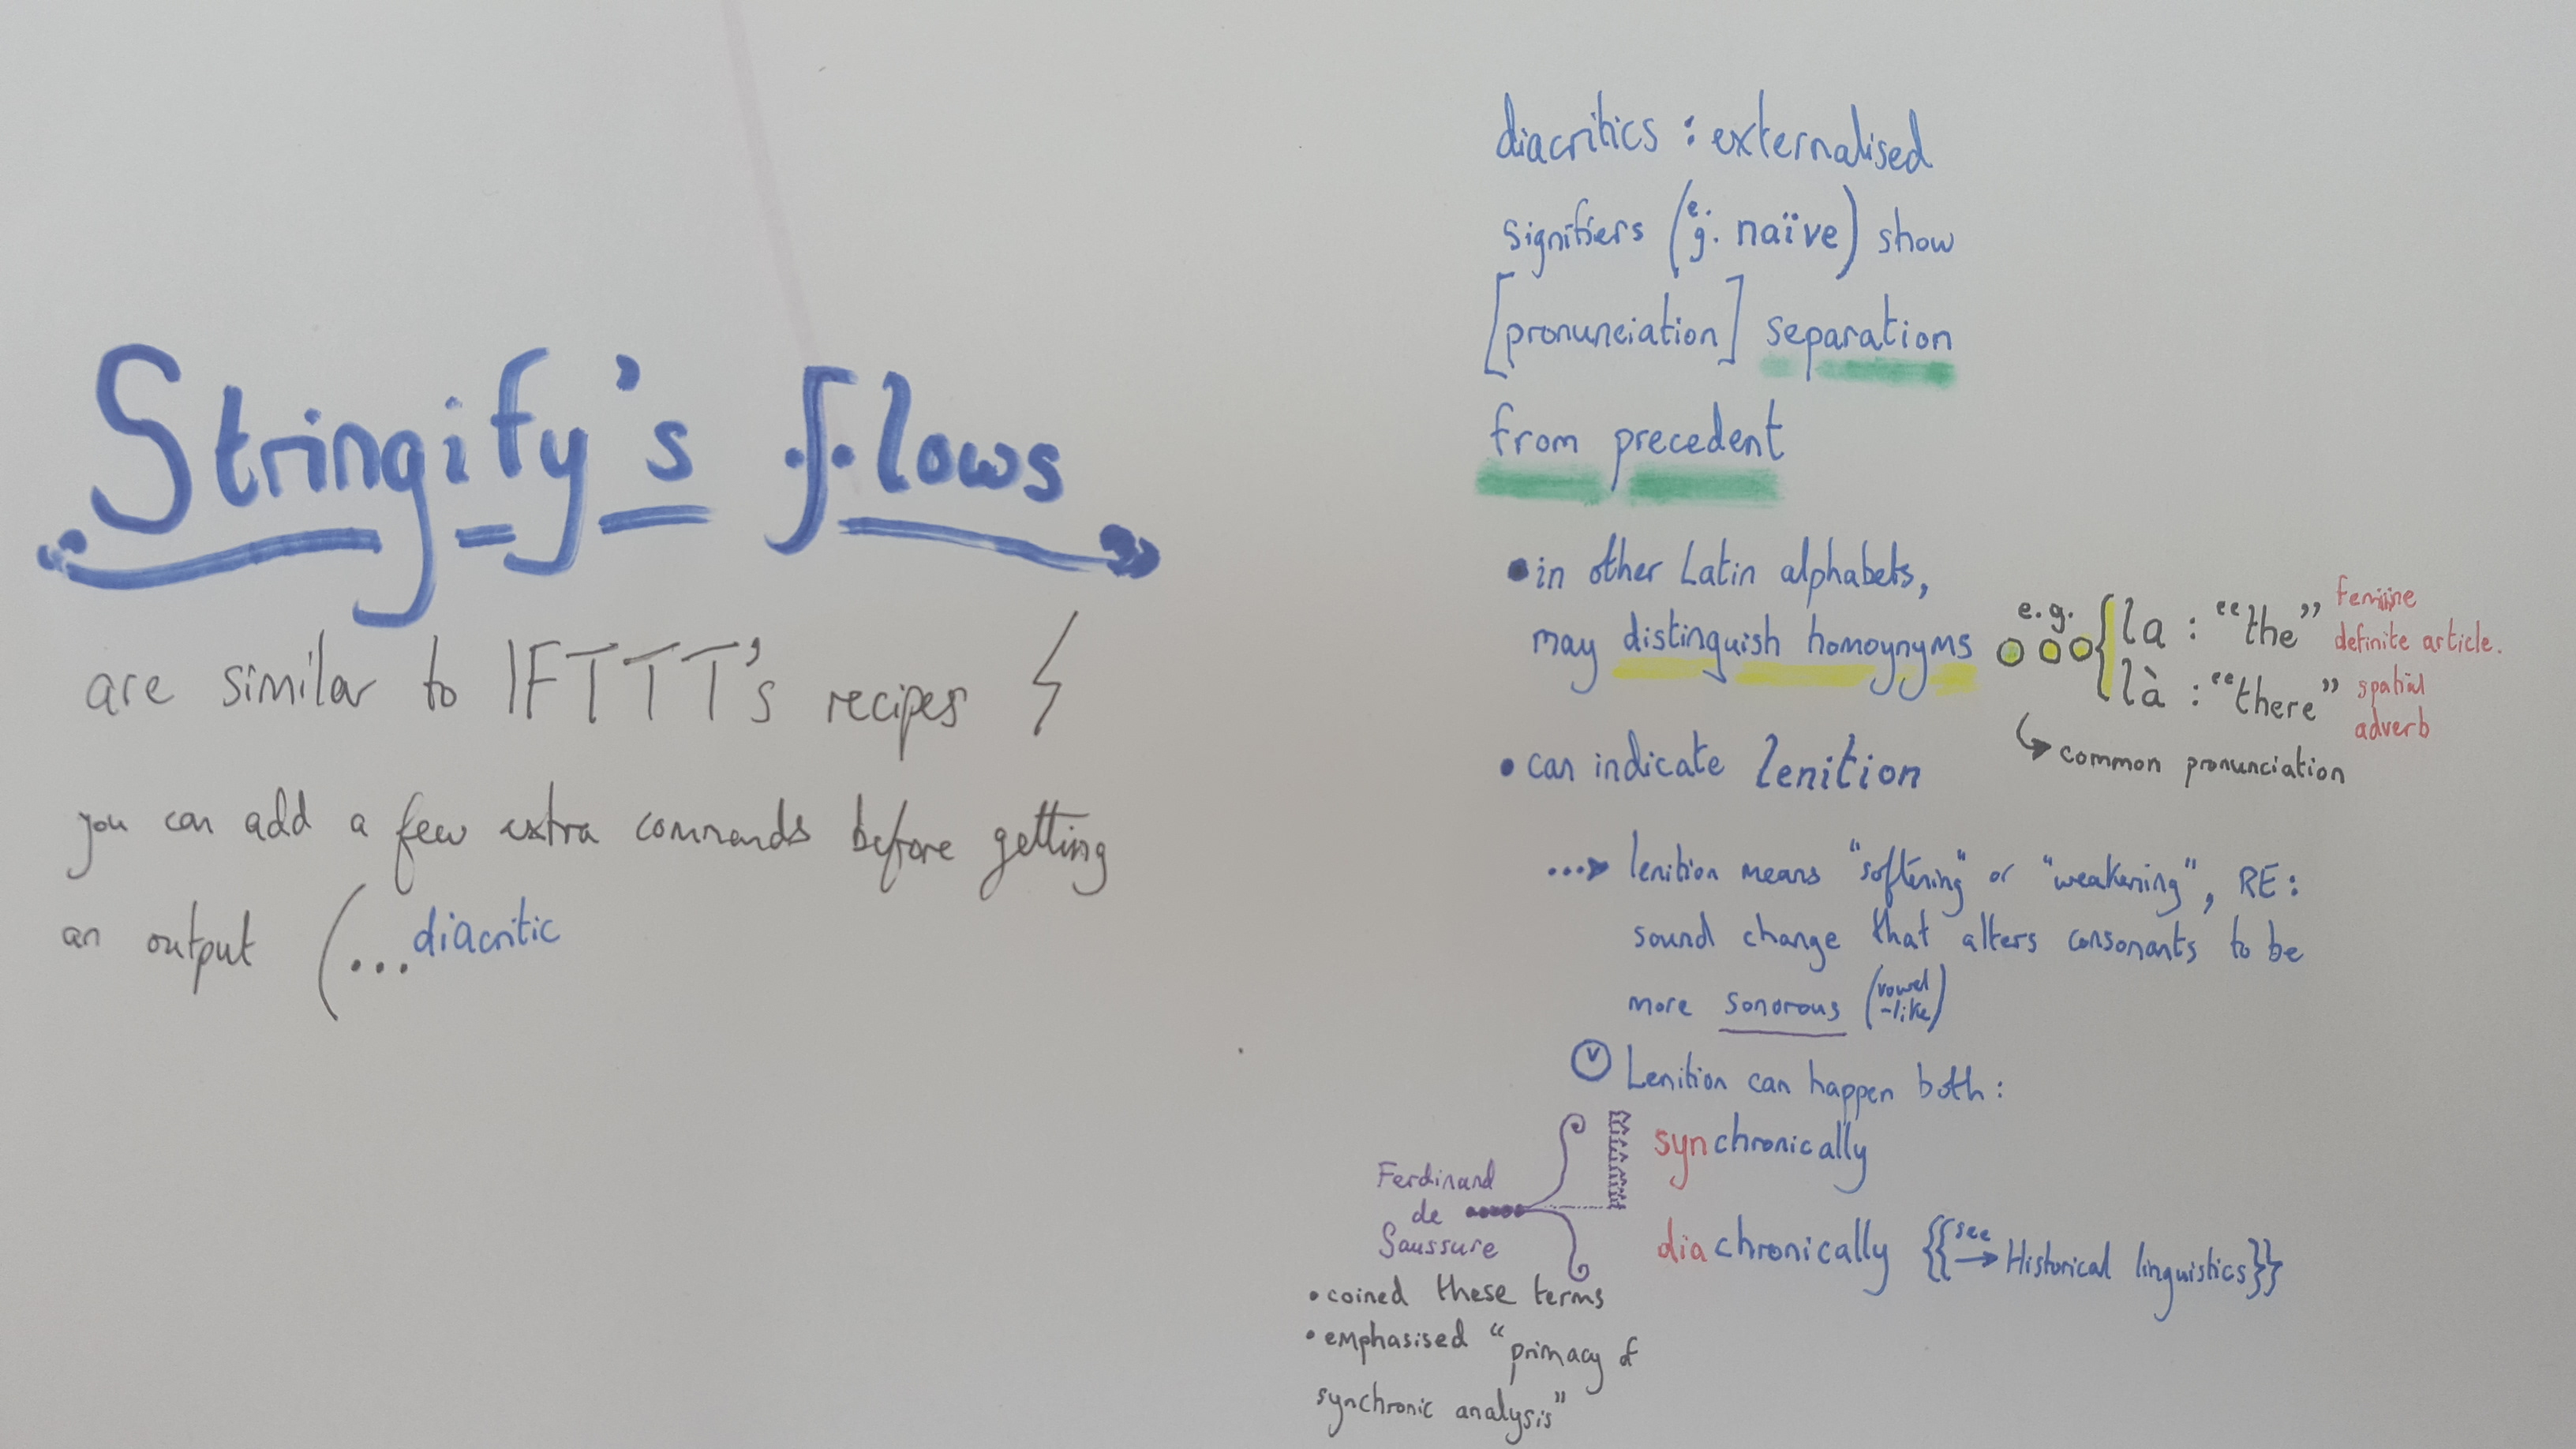 Stringify's flows
are similar to IFTTT's recipes
you can add a few extra commands before getting
an output (... diacritic
diacritics : externalised
signifiers (e.g. naïve) show
[pronunciation] separation
from precedent
• in other Latin alphabets,
may distinguish homonyms
e.g. { la : "the" feminine definite article.
là : "there" spatial adverb
↳ common pronunciation
• can indicate lenition
...→ lenition means "softening" or "weakening", RE:
sound change that alters consonants to be
more sonorous (vowel -like)
Lenition can happen both :
synchronically
diachronically {{see → Historical linguistics}}
Ferdinand
de
Saussure
• coined these terms
• emphasised "primacy of
synchronic analysis"